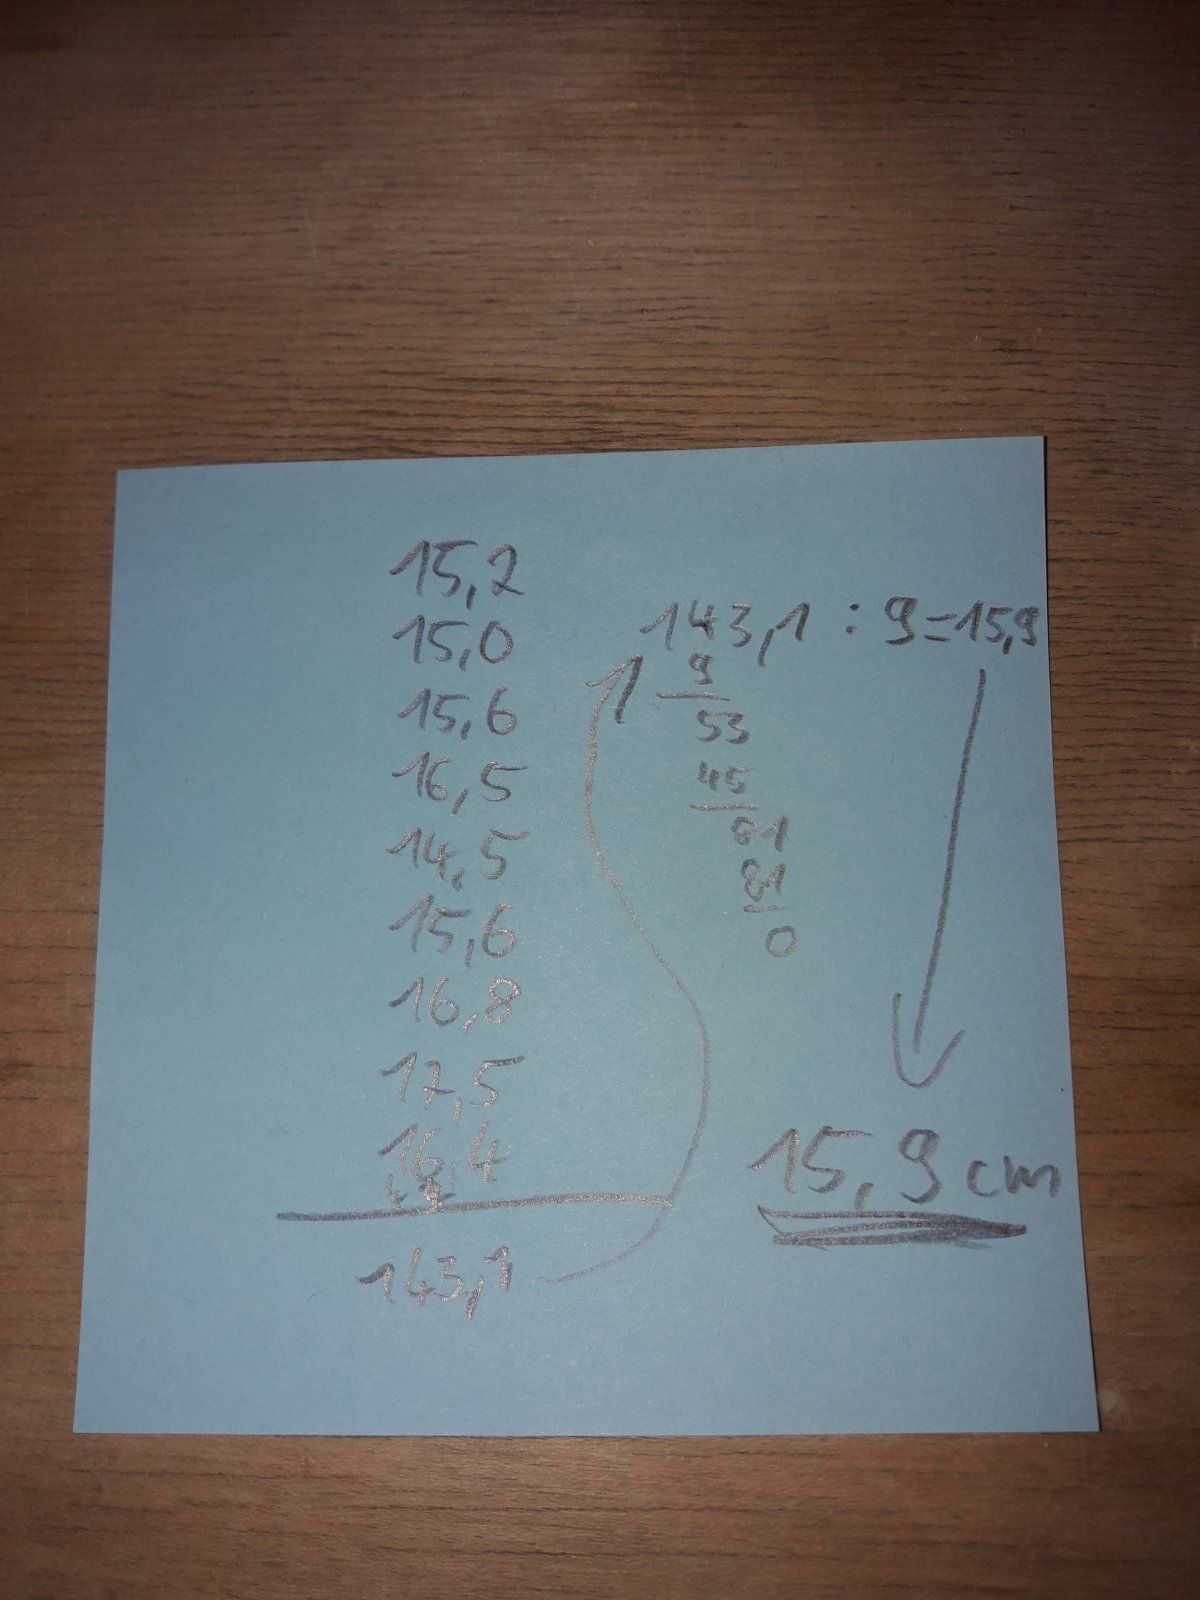 15,2
15,0
15,6
16,5
14,5
15,6
16,8
17,5
16,4
143,1
143,1 : 9=15,9
9
53
45
81
81
0
15,9 cm